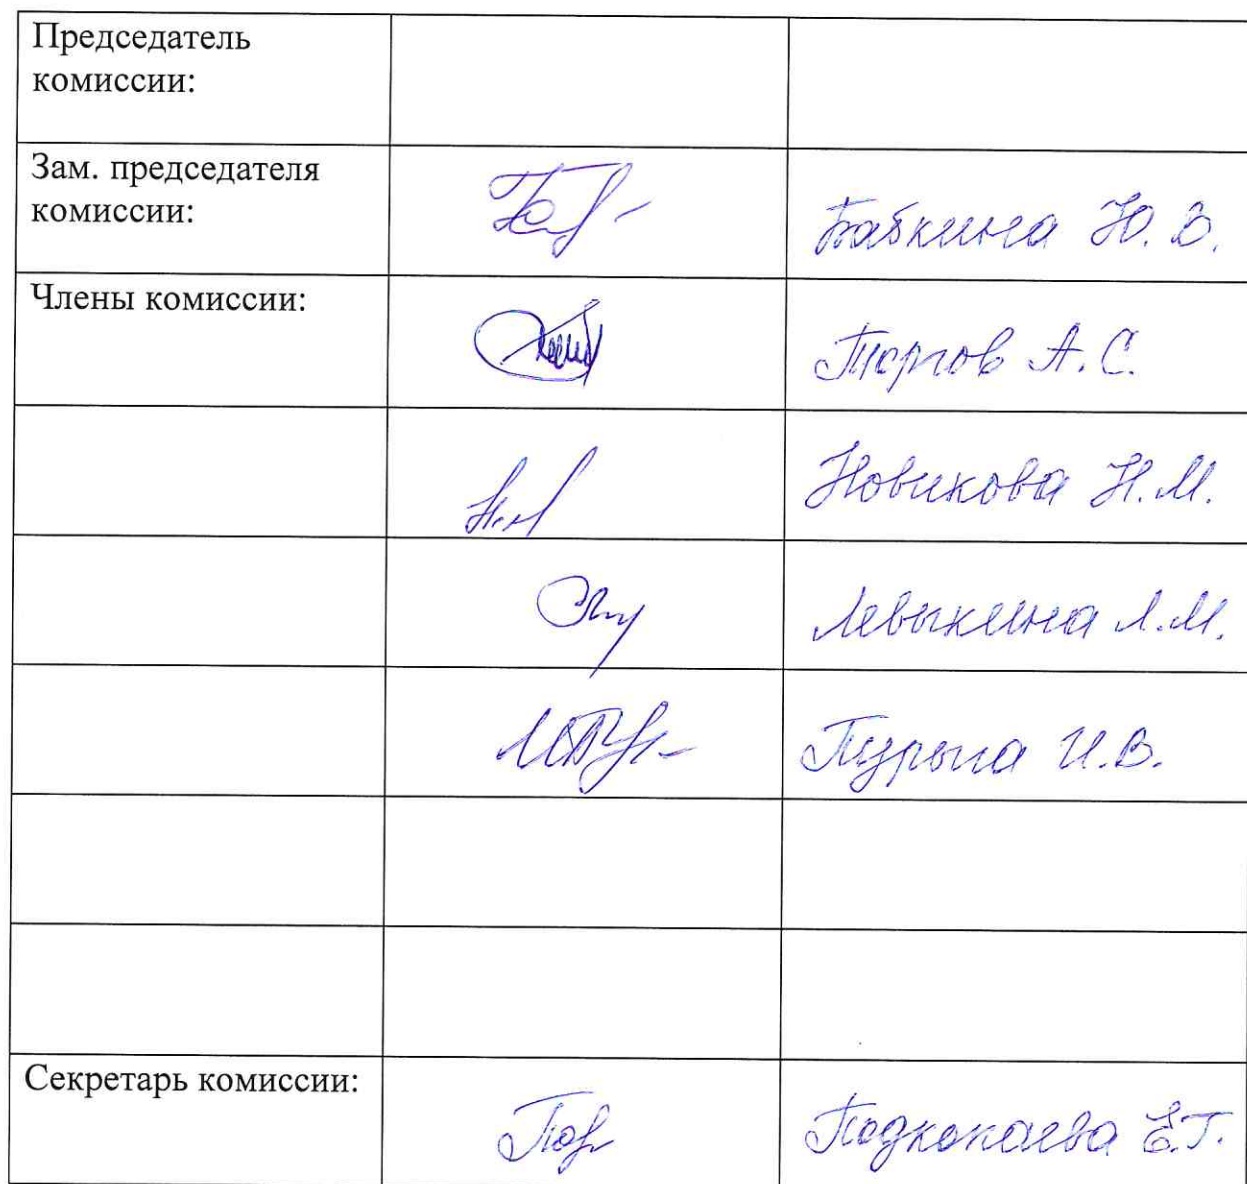 Председатель
комиссии:
Зам. председателя
комиссии:
Бабкина Ю. В.
Члены комиссии:
А. С.
Новикова Н. М.
Левыкина Л. М.
И. В.
Секретарь комиссии:
Подкопаева Е. Г.